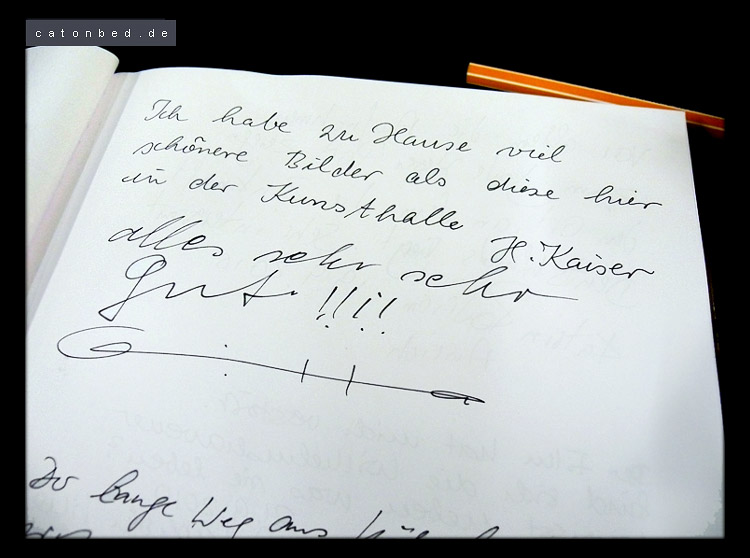 catonbed.de
Ich habe zu Hause viel
schönere Bilder als diese hier
in der Kunsthalle H. Kaiser
alles sehr sehr
gut. !!!!
lange Weg aus